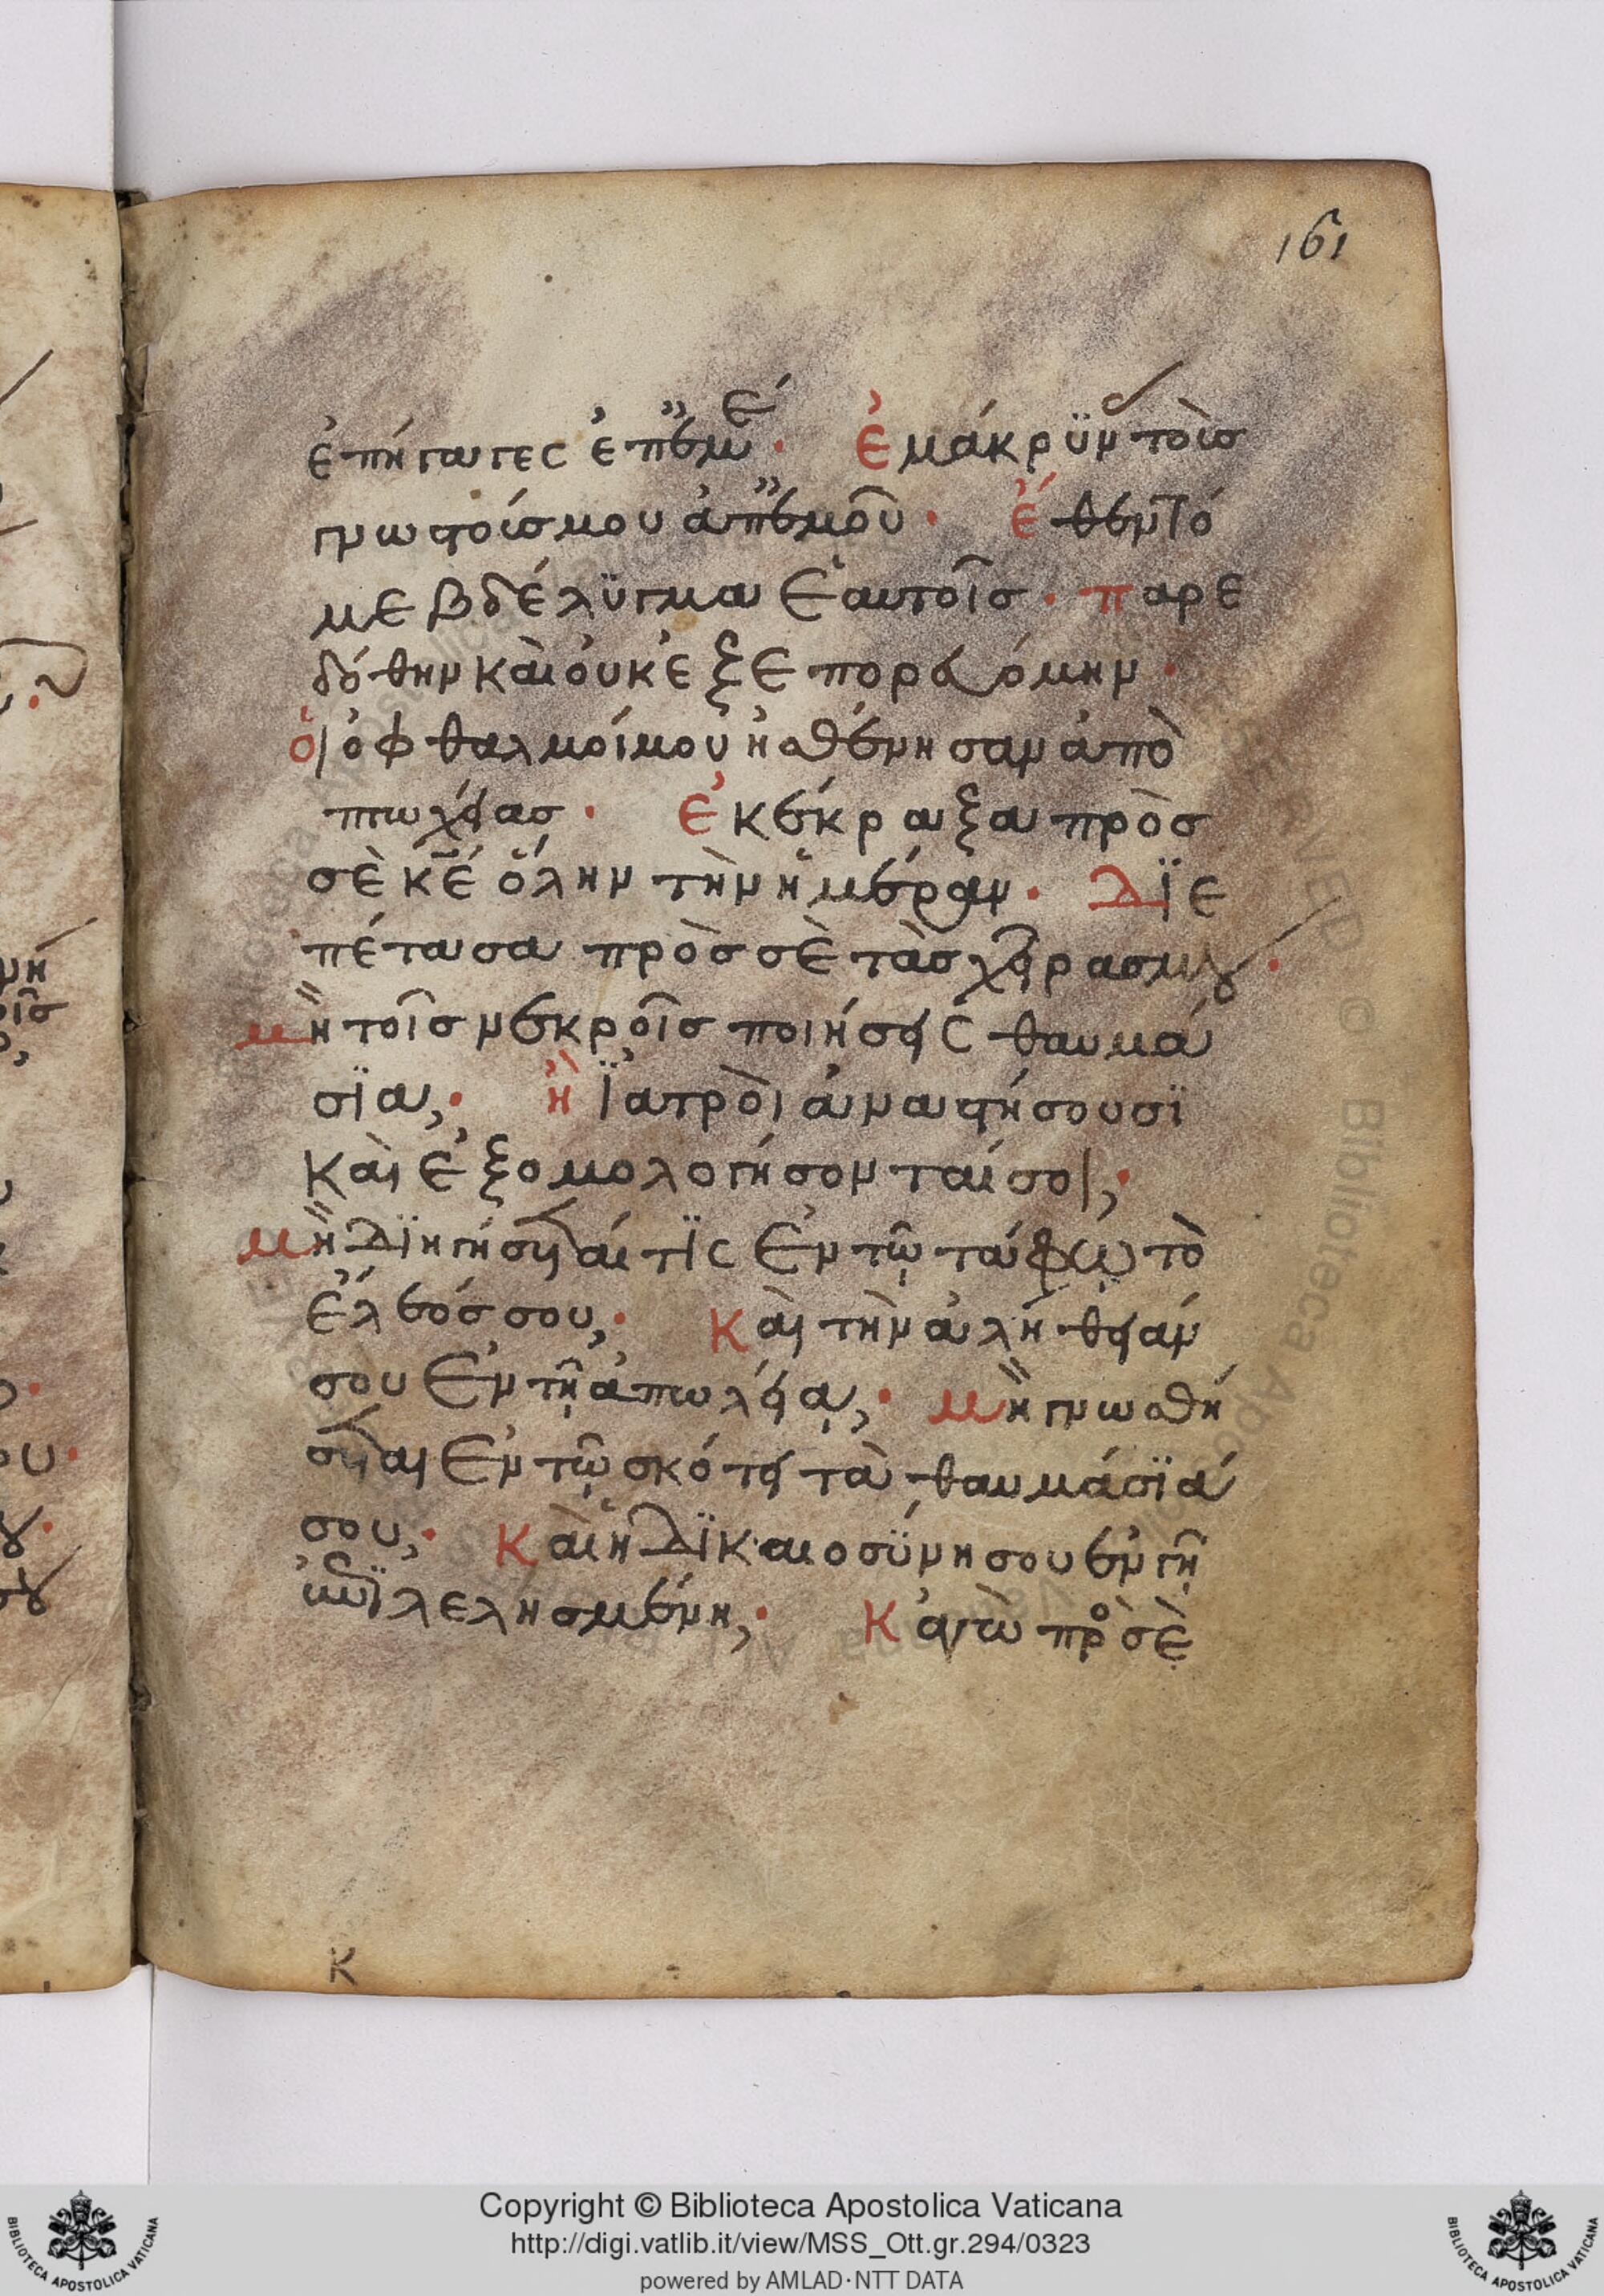 161
ἐπήγαγες ἐπ' ἐμέ· ἐμάκρϋνας τοὺσ
γνωστούσ μου ἀπ' ἐμοῦ· ἔθεντό
με βδέλϋγμα ἑαυτοῖσ· παρε
δόθην καὶ οὐκ ἐξεπορευόμην·
ὁι ὀφθαλμοί μου ἠσθένησαν ἀπὸ
πτωχείασ· ἐκέκραξα πρὸσ
σὲ κ̅ε̅ ὅλην τὴν ἡμέραν· Δϊε
πέτασα πρὸσ σὲ τὰσ χεῖρασ μου·
μὴ τοῖσ νεκροῖσ ποιήσεις θαυμά
σϊα;· ἢ ϊατρὸι ἀναστήσουσϊ
Καὶ ἐξομολογήσονταί σοι;·
μὴ Δϊηγήσηταί τϊς ἐν τῷ τάφῳ τὸ
ἔλεόσ σου;· Καὶ τὴν ἀλήθειάν
σου ἐν τῇ ἀπωλείᾳ;· μὴ γνωσθή
σηται ἐν τῷ σκότει τὰ θαυμάσϊά
σου;· Καὶ ἡ Δϊκαιοσϋνη σου ἐν γῇ
ἐπϊλελησμένη;· Κἀγὼ πρὸσ σὲ
κ
Copyright © Biblioteca Apostolica Vaticana
http://digi.vatlib.it/view/MSS_Ott.gr.294/0323
powered by AMLAD·NTT DATA
BIBLIOTECA APOSTOLICA VATICANA
BIBLIOTECA APOSTOLICA VATICANA